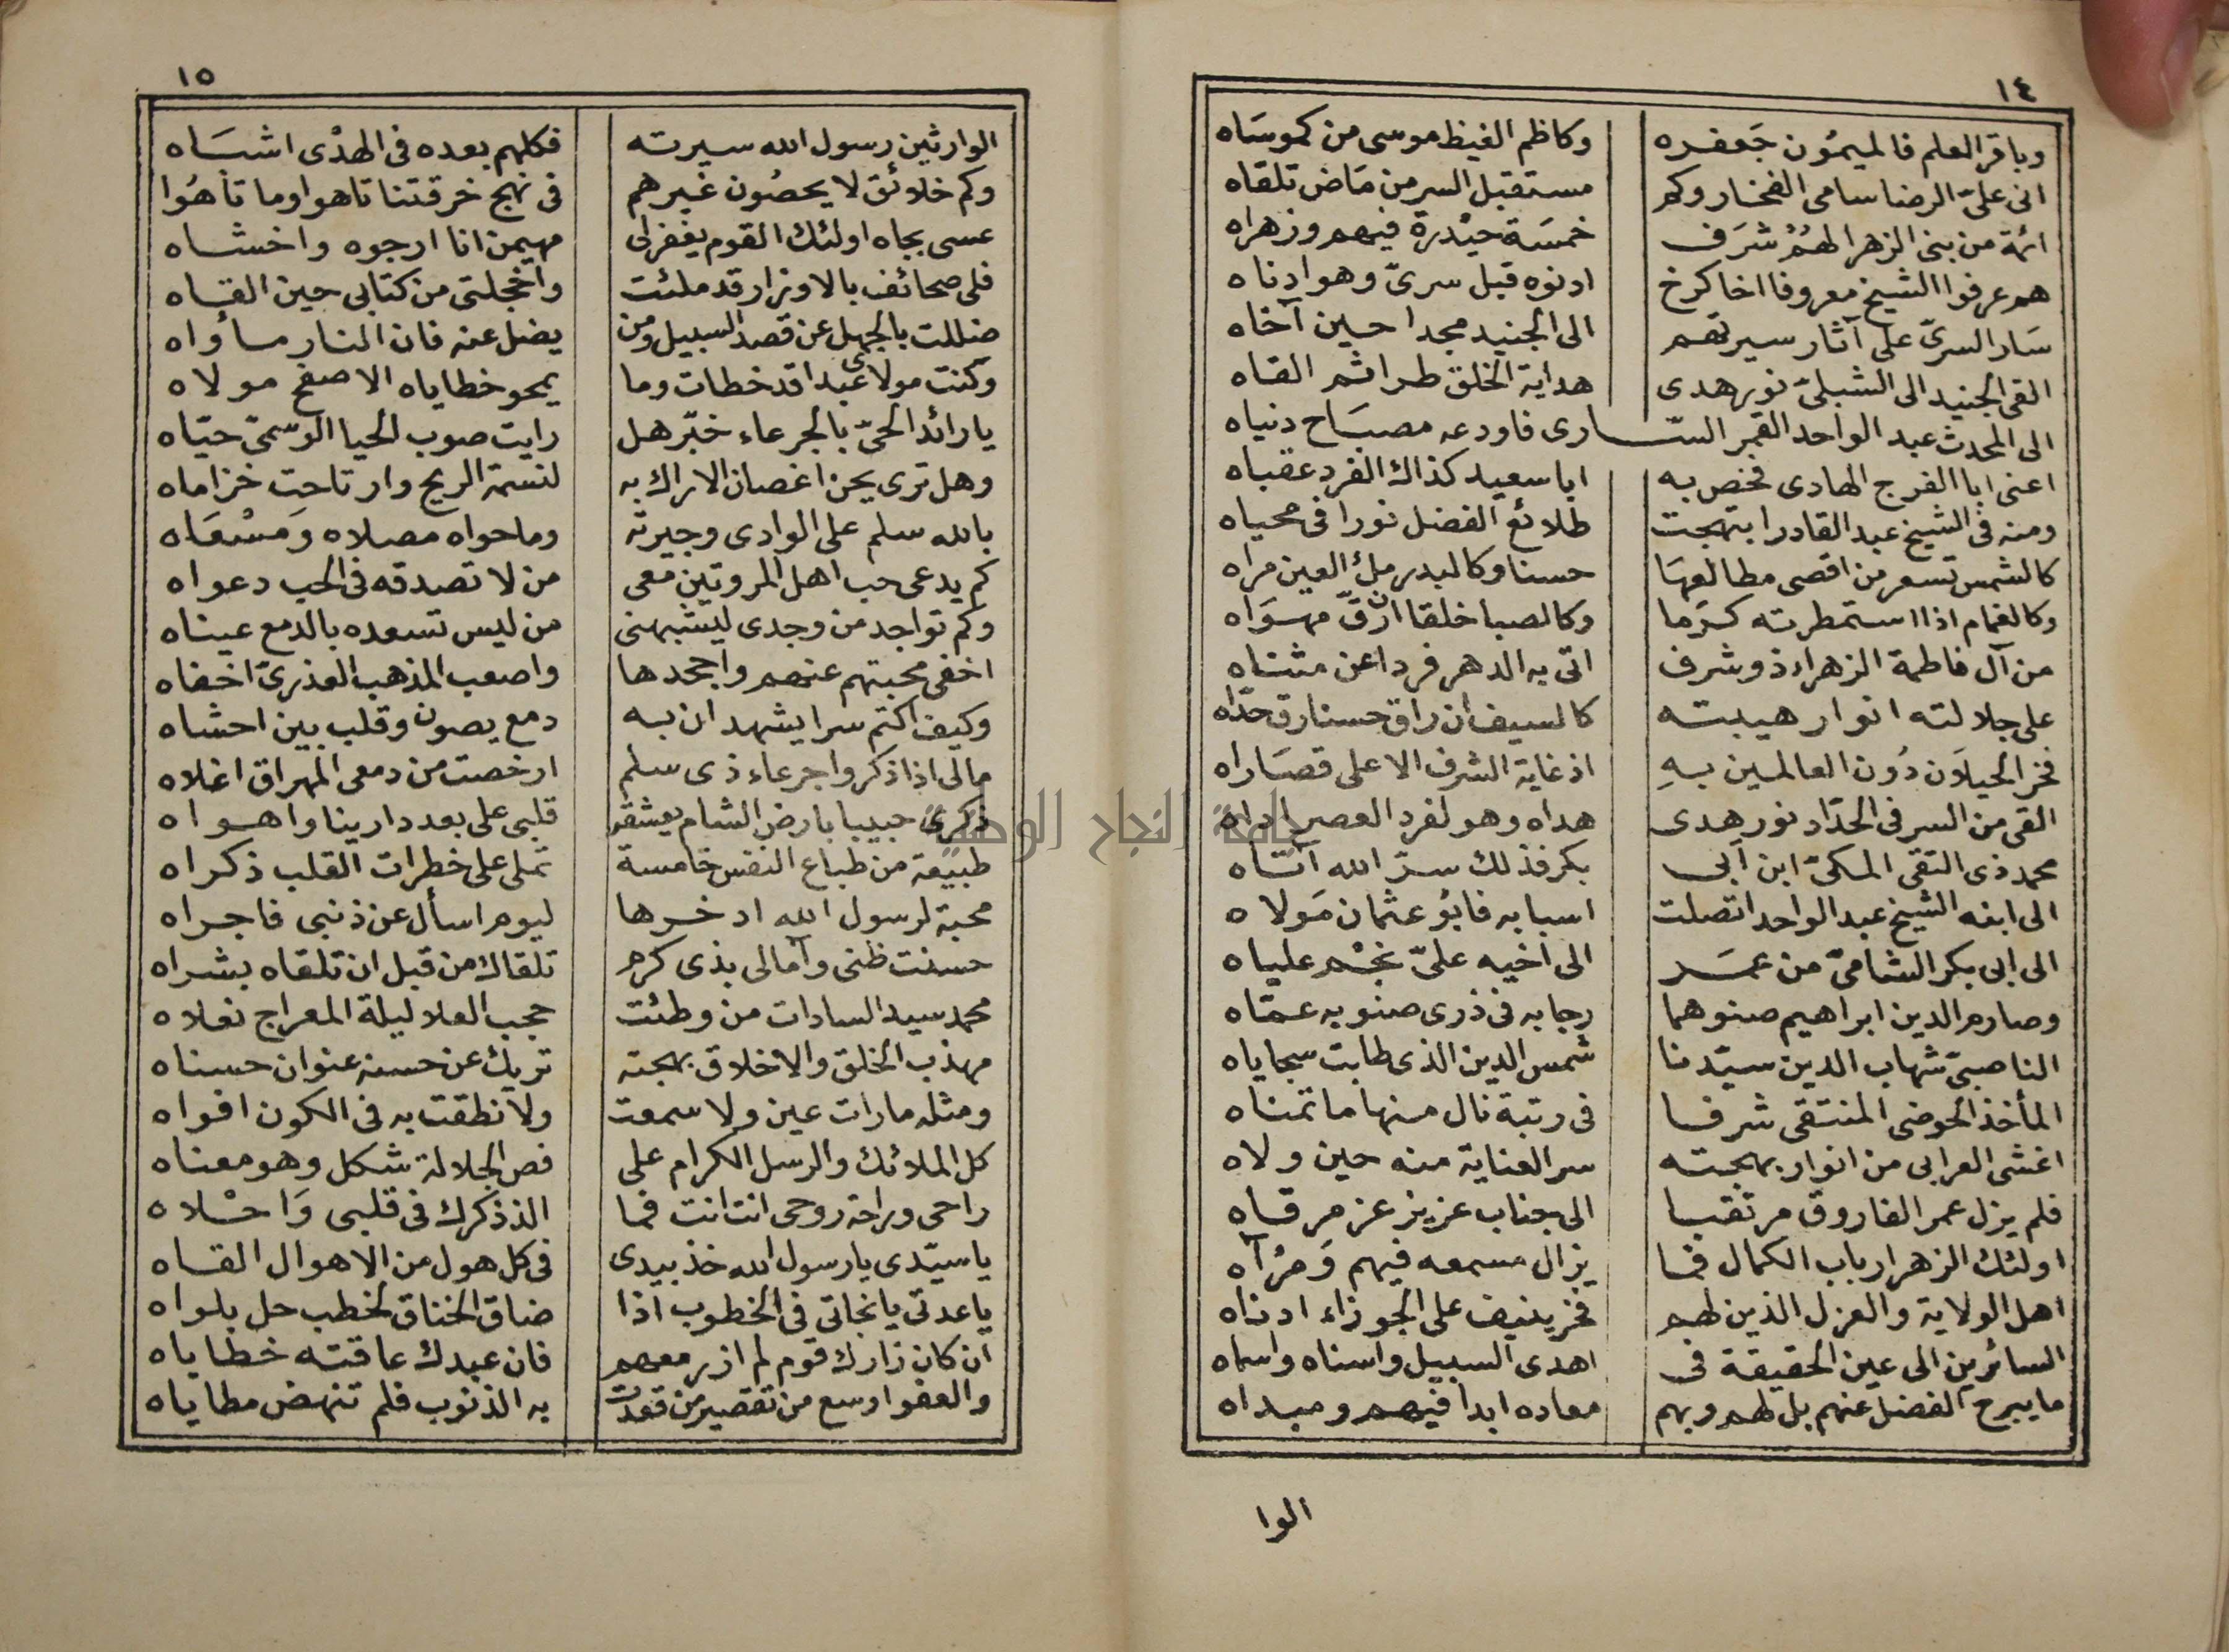 ١٤
وباقر العلم فالميمون جَعفره وكاظم الغيظ موسى من كموسَاه
انى علىّ الرضا سامى الفخار وكم مستقبل السر من مَاض تلقاه
ائمة من بنى الزهرا لهُمْ شرَف خمسَة حيْدرة فيهم وزهراه
هم عرفوا الشيخ معروفا اخا كرخ ادنوه قبل سرىّ وهو ادناه
سَار السرىّ على آثار سيرتهم الى الجنيد مجدا حين آخاه
القى الجنيد الى الشبلىّ نور هدى هداية الخلق طرا ثم القاه
الى المحدث عبد الواحد القمر السّارى فاودعه مصبَاح دنياه
اعنى ابا الفرج الهادى فخص به ابا سعيد كذاك الفرد عقباه
ومنه فى الشيخ عبد القادر ابتهجت طلائع الفضل نورا فى محياه
كالشمس تسعر من اقصى مطالعهَا حسنا وكالبدر ملئ العين مراه
وكالغمام اذا استمطرته كرَما وكالصبا خلقا ان رقّ مهوَاه
من آل فاطمة الزهراء ذو شرف اتى به الدهر فردا عن مثناه
على جلالته انوار هيبته كالسيف ان راق حسنا رق حدّاه
فخر الجيلاَن دُون العالمين بهِ اذ غاية الشرف الاعلى قصَاراه
القى من السر فى الحدّاد نور هدى هداه وهو لفرد العصر اداه
محمد ذى التقى المكىّ ابن أبى بكر فذلك سرّ الله آتاه
الى ابنه الشيخ عبد الواحد اتصلت اسبابه فابُو عثمان مَولاه
الى ابى بكر الشامىّ من عمَر الى اخيه علىّ نجْم علياه
وصارم الدين ابراهيم صنوهما رجا به فى ذرى صنو به عمّاه
الناصبىّ شهاب الدين سيّدنا شمس الدين الذى طابت سجاياه
المأخذ الحوضى المنتقى شرفا فى رتبة نال منها ما تمناه
اغشى العرابى من انوار بهجته سر العناية منه حين ولاه
فلم يزل عمر الفاروق مرتقبا الى جناب عزيز عز مرقاه
اولئك الزهر ارباب الكمال فما يزال مسمعه فيهم وَمرْآه
اهل الولاية والعزل الذين لهم فخر ينيف على الجوزاء ادناه
السائرين الى عين الحقيقة فى اهدى السبيل واسناه واسماه
ما يبرح الفضل عنهم بل لهم وبهم معاده ابدا فيهم ومبداه
الوا
١٥
الوارثين رسول الله سيرته فكلهم بعده فى الهدْى اشبَاه
وكم خلائق لا يحصُون غيرهم فى نهج خرقتنا تاهوا وما تاهُوا
عسى بجاه اولئك القوم يغفر لى مهيمن انا ارجوه واخشاه
فلى صحائف بالاوزار قد ملئت واخجلتى من كتابى حين القاه
ضللت بالجهل عن قصد السبيل ومن يضل عنه فان النار مأواه
وكنت مولاى عبدا قد خطات وما يمحو خطاياه الا صفح مولاه
يا رائد الحىّ بالجرعاء خبّر هل رايت صوب الحيا الوسمىّ حيّاه
وهل ترى يحن اغصان الاراك به لنسمة الريح وارتاحت خزاماه
بالله سلم على الوادى وجيرته وما حواه مصلاه وَمسْعَاه
كم يدعى حب اهل المروتين معى من لا تصدقه فى الحب دعواه
وكم تواجد من وجدى ليشبهنى من ليس تسعده بالدمع عيناه
اخفى محبتهم عنهم واجحدها واصعب المذهب العذرىّ اخفاه
وكيف اكتم سرا يشهدان به دمع يصون وقلب بين احشاه
مالى اذا ذكروا جرعاء ذى سلم ارخصت من دمعى المهراق اغلاه
ذكرى حبيبا بارض الشام يعشقه قلبى على بعد دارينا واهواه
طبيعة من طباع النفس خامسة تملى على خطرات القلب ذكراه
محبة لرسول الله ادخرها ليوم اسأل عن ذنبى فاجراه
حسنت ظنى وآمالى بذى كرم تلقاك من قبل ان تلقاه بشراه
محمد سيد السادات من وطئت حجب العلا ليلة المعراج نعلاه
مهذب الخلق والاخلاق بهجته تريك عن حسنه عنوان حسناه
ومثله ما رات عين ولا سمعت ولا نطقت به فى الكون افواه
كل الملائك والرسل الكرام على فص الجلالة شكل وهو معناه
راحى وراحة روحى انت انت فما الذ ذكرك فى قلبى وَاحْلاه
يا سيّدى يا رسول الله خذ بيدى فى كل هول من الاهوال القاه
يا عدتى يا نجاتى فى الخطوب اذا ضاق الخناق لخطب حل بلواه
ان كان زارك قوم لم ازر معهم فان عبدك عاقته خطاياه
والعفو اوسع من تقصير من قعدت به الذنوب فلم تنهض مطاياه
جامعة النجاح الوطنية